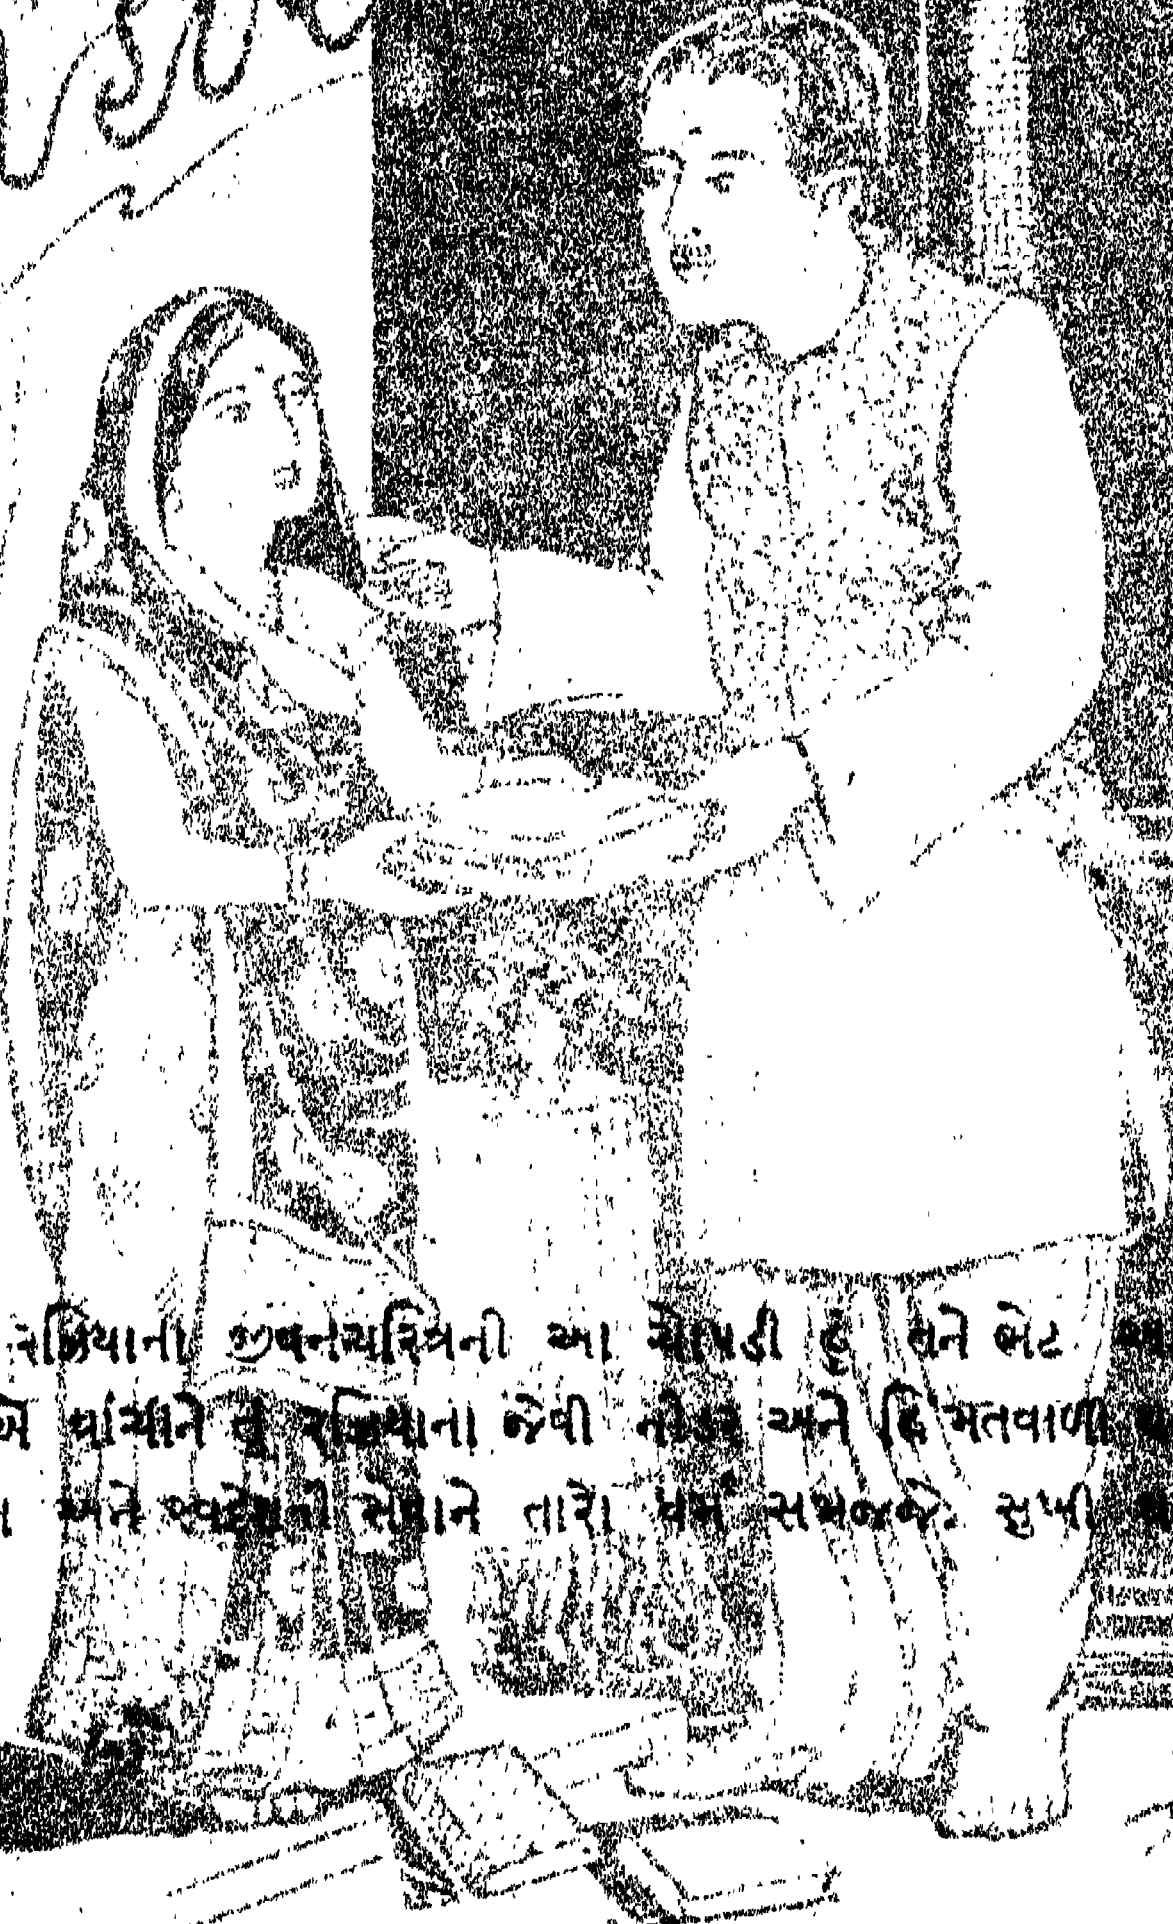 રઝિયાના જીવનચરિત્રની આ ચોપડી હું તને ભેટ
એ વાંચીને તું રઝિયાના જેવી નીડર અને હિંમતવાળી
અને સ્વદેશની સેવાને તારો ધર્મ સમજજે. સુખી